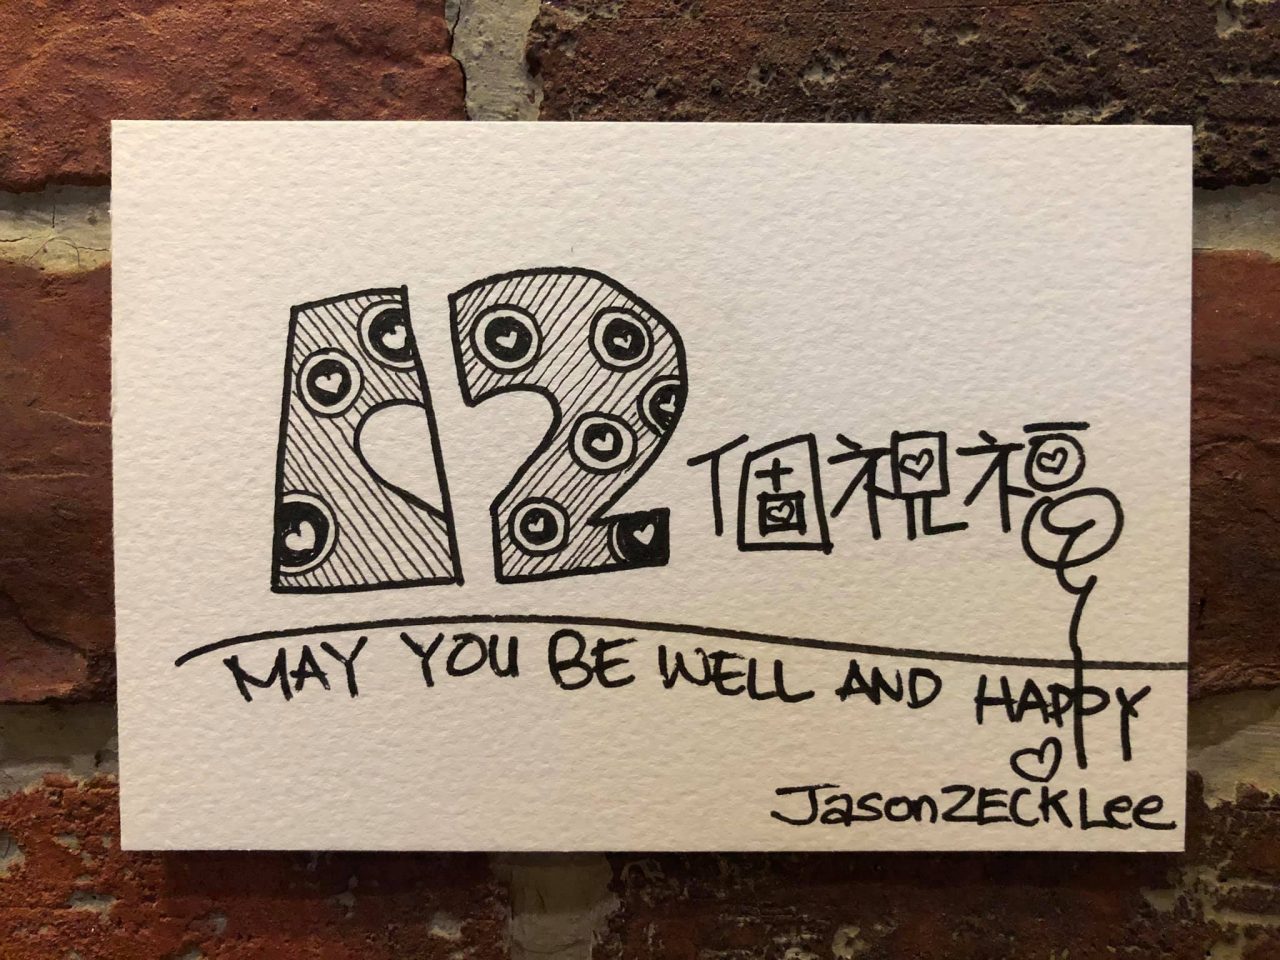 12個祝福
MAY YOU BE WELL AND HAPPY
JasonZECKLee